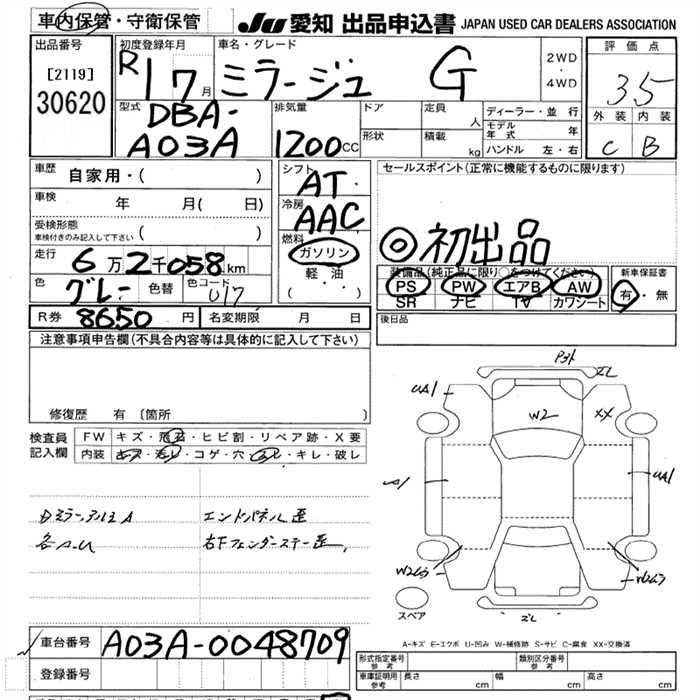 車内保管・守衛保管
JU 愛知 出品申込書 JAPAN USED CAR DEALERS ASSOCIATION
出品番号
[2119]
30620
初度登録年月
R1 7月
車名・グレード
ミラージュ G
2WD
・
4WD
評価点
3.5
外装 内装
C B
型式
DBA-
A03A
排気量
1200cc
ドア
形状
定員
人
積載
kg
ディーラー・並行
モデル
年式 年
ハンドル 左・右
車歴
自家用・( )
車検
年 月( 日)
受検形態
車検付きのみ記入して下さい ( )
走行
6万2千058km
色
グレー
色替
色コード
U17
シフト
AT
冷房
AAC
燃料
ガソリン
軽油
( ・ )
セールスポイント(正常に機能するものに限ります)
◎初出品
装備品(純正品に限り○をつけてください)
PS PW エアB AW
SR ナビ TV カワシート
新車保証書
有・無
R券 8650円
名変期限 月 日
後日品
注意事項申告欄(不具合内容等は具体的に記入して下さい)
修復歴 有 〔箇所
検査員
記入欄
FW キズ・飛石・ヒビ割・リペア跡・X要
内装 キズ・汚レ・コゲ・穴・スレ・キレ・破レ
エンドパネル歪
右下フェンダーステー歪
UA1
W2
XX
A1
UA1
W2
スペア
A-キズ E-エクボ U-凹み W-補修跡 S-サビ C-腐食 XX-交換済
車台番号 A03A-0048709
登録番号
形式指定番号
参考
類別区分番号
参考
車庫証明用
参考
長さ cm
幅 cm
高さ cm